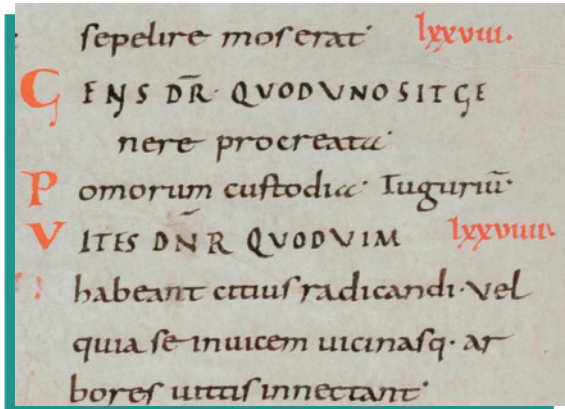 sepelire mos erat· lxxviii.
GENS DR̄· QVOD VNO SIT GE
nere procreata·
Pomorum custodia· Tuguriū·
VITES DN̄R QVOD VIM lxxviiii.
habeant citius radicandi· vel
quia se inuicem uicinasq· ar
bores uittis innectant·